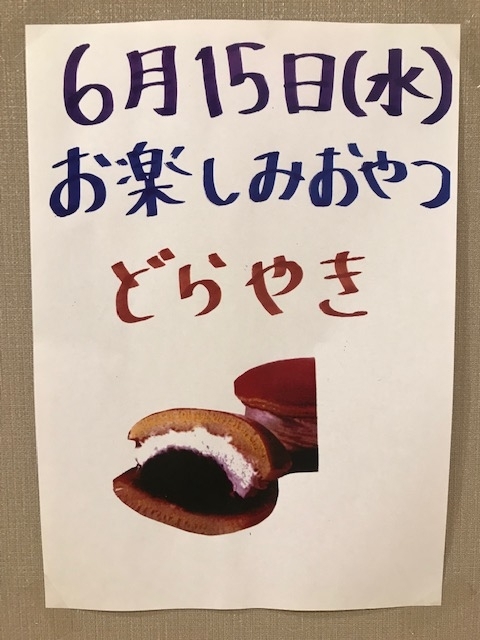 6月15日(水)
お楽しみおやつ
どらやき